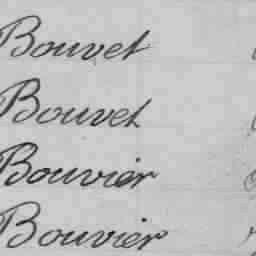 Bouvet
Bouvet
Bouvier
Bouvier